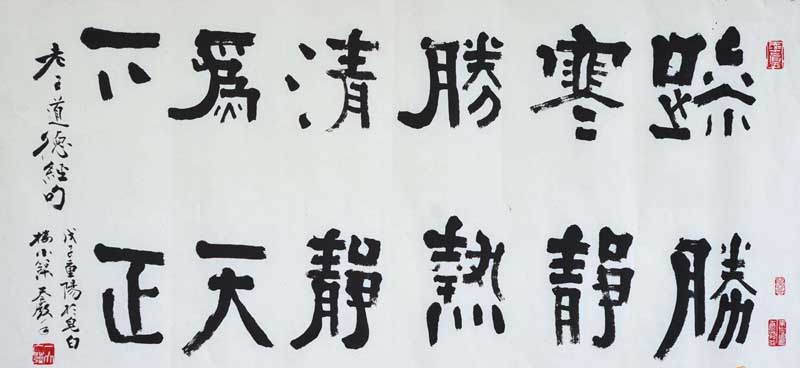 躁勝
寒靜
勝熱
清靜
爲天
下正
老子道德經句
戊子重陽於皂白
樓小築